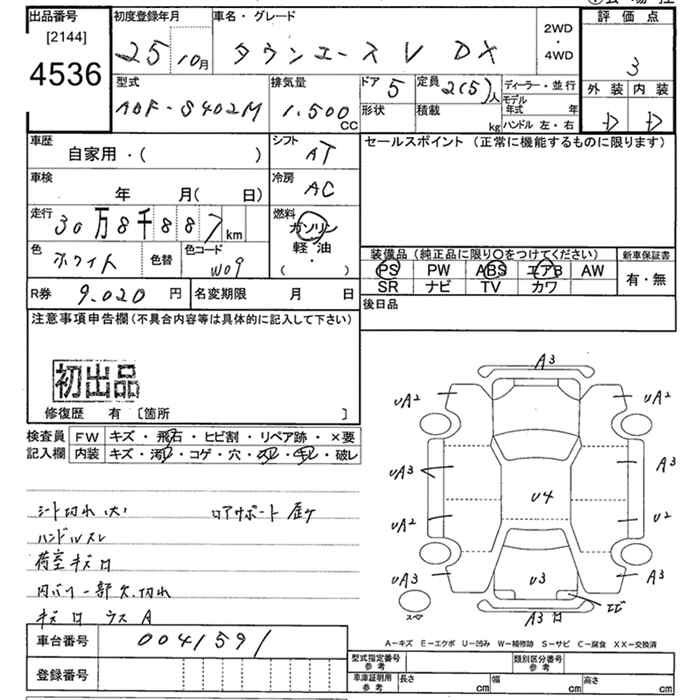 出品番号 初度登録年月 車名・グレード 2WD・4WD 評価点
[2144]
4536 25 10月 タウンエースV DX 3
型式 排気量 ドア 5 定員 2(5)人 ディーラー・並行 外装 内装
ABF-S402M 1.500CC 形状 積載 kg モデル年式 年 D D
ハンドル 左・右
車歴 シフト セールスポイント (正常に機能するものに限ります)
自家用・( ) AT
車検 冷房
年 月( 日) AC
走行 燃料
30万8千887km ガソリン
軽・油
・
( )
色 ホワイト 色替 色コード W09
装備品(純正品に限り○をつけてください) 新車保証書
PS PW ABS エアB AW 有・無
SR ナビ TV カワ
R券 9.020円 名変期限 月 日
後日品
注意事項申告欄(不具合内容等は具体的に記入して下さい)
初出品
修復歴 有 [箇所 ]
検査員 FW キズ・飛石・ヒビ割・リペア跡・×要
記入欄 内装 キズ・汚レ・コゲ・穴・スレ・キレ・破レ
シート切れ(大) ロアサポート 歪ケ
ハンドルスレ
荷室キズロ
内バリ一部欠、切れ
キズロ ウスA
A3
UA2 UA2
UA3 A3
U4
UA2 U2
UA3 U3 A3
スペア A3ロ ヒビ
A-キズ E-エクボ U-凹み W-補修跡 S-サビ C-腐食 XX-交換済
車台番号 0041591
登録番号
型式指定番号 参考 類別区分番号 参考
車庫証明用 参考 長さ cm 幅 cm 高さ cm